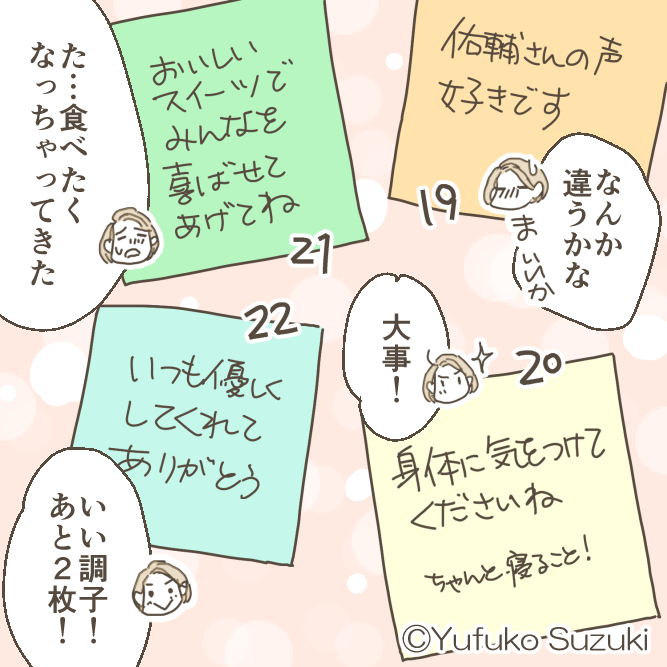 佑輔さんの声
好きです
19
なんか
違うかな
まぁいいか
身体に気をつけて
くださいね
ちゃんと寝ること！
20
大事！
おいしい
スイーツで
みんなを
喜ばせて
あげてね
21
た…食べたく
なっちゃってきた
22
いつも優しく
してくれて
ありがとう
いい調子！
あと２枚！
©Yufuko Suzuki